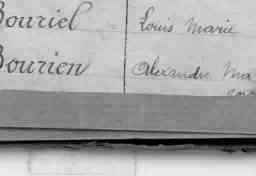 Bouriel Louis Marie
Bourien Alexandre Ma